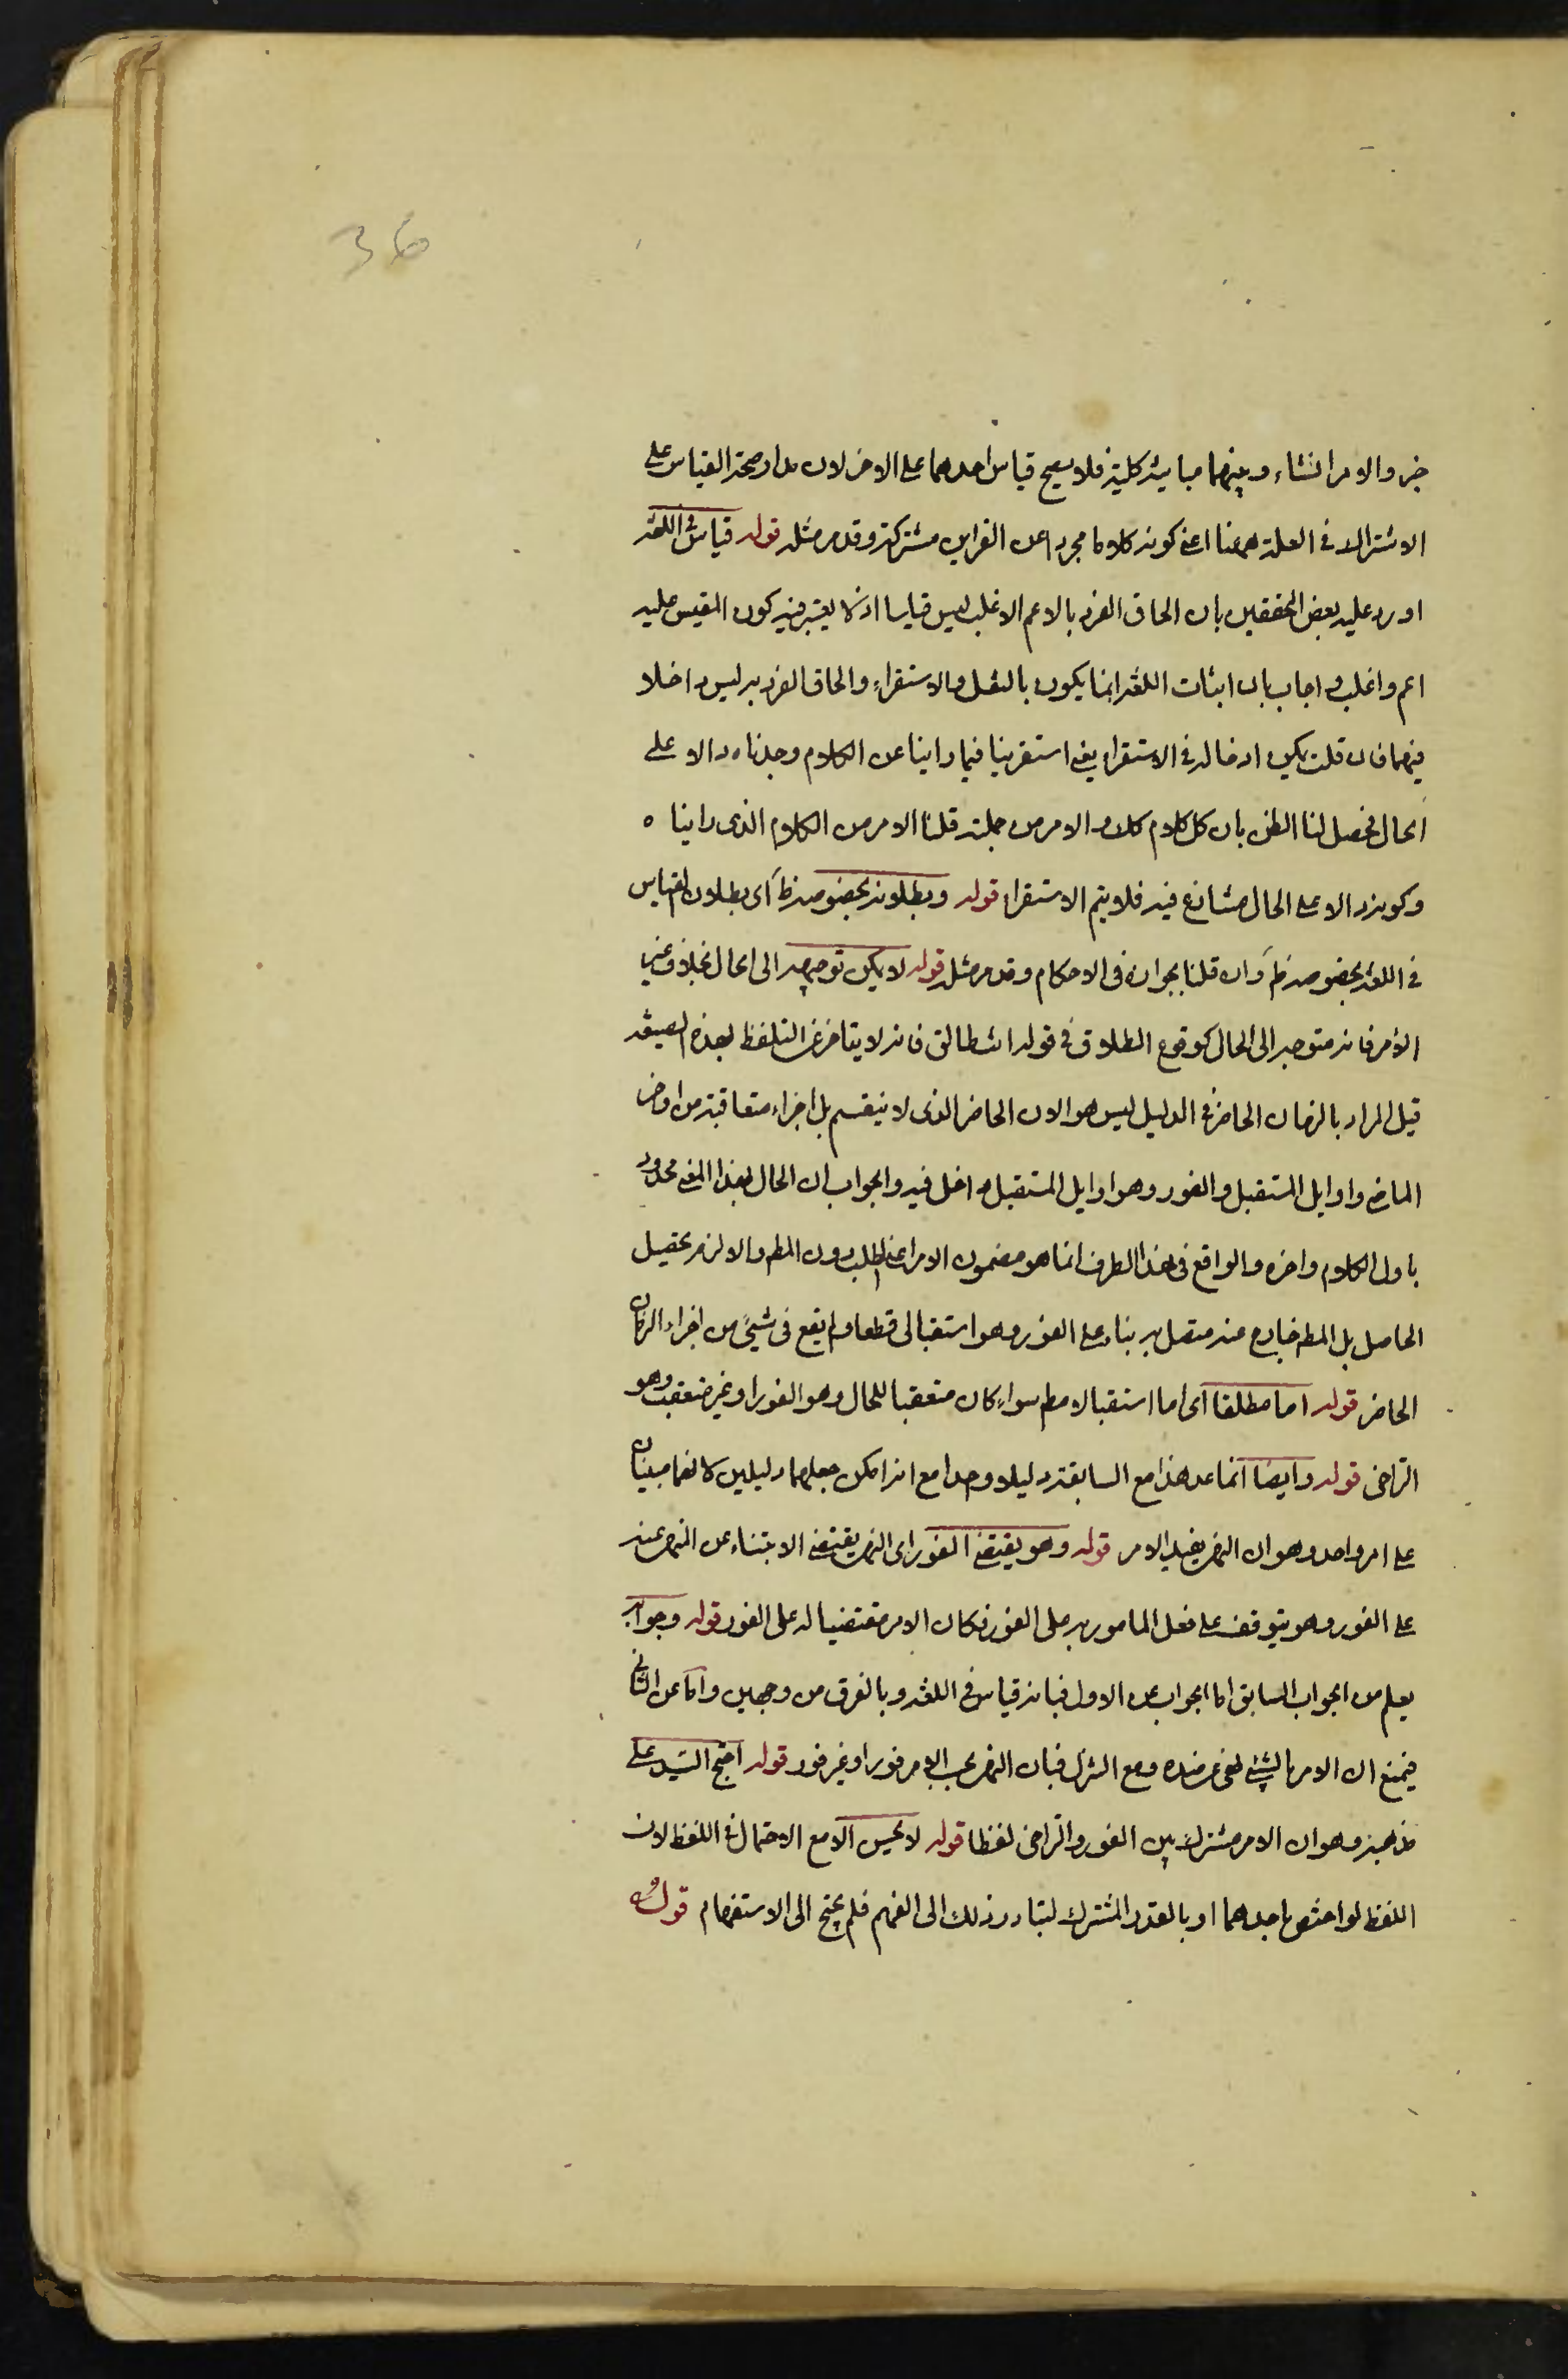 36
خبر والامر انشاء وبينهما مباينة كلية فلا يصح قياس احدهما على الاخر لان مدار صحة القياس على
الاشتراك فى العلة ههنا اعنى كونه كلاما مجردا عن القراين مشتركة وقد مر مثله قوله قياس فى اللغة
اورد عليه بعض المحققين بان الحاق الفرد بالاعم الاغلب ليس قياسا اذ لا يعتبر فيه كون المقيس عليه
اعم واغلب واجاب بان اثبات اللغة انما يكون بالنقل والاستقراء والحاق الفرد به ليس داخلا
فيهما فان قلت يمكن ادخاله فى الاستقراء يعنى استقرينا فيما راينا عن الكلام وجدناه دالا على
الحال فحصل لنا الظن بان كل كلام كك والامر من جملته قلنا الامر من الكلام الذى راينا ه
وكونه دالا على الحال متنازع فيه فلا يتم الاستقراء قوله وبطلانه بخصوصه ظ اى بطلان القياس
فى اللغة بخصوصه ظ وان قلنا بجوازه فى الاحكام وقد مر مثله قوله لا يمكن توجيهه الى الحال بخلاف غير
الامر فانه متوجه الى الحال كوقوع الطلاق فى قوله انت طالق فانه لا يتاخر عن التلفظ بهذه الصيغة
قيل المراد بالزمان الحاضر فى الدليل ليس هو الان الحاضر الذى لا ينقسم بل اجزاء متعاقبة من اواخر
الماضى واوايل المستقبل والفور وهو اوايل المستقبل داخل فيه والجواب ان الحال بهذا المعنى محدود
باول الكلام واخره والواقع فى هذا الطرف انما هو مضمون الامر اعنى الطلب دون المط والا لزم تحصيل
الحاصل بل المط خارج عنه متصل به بناء على الفور وهو استقبالى قطعا ولم يقع فى شىء من اجزاء الزمان
الحاضر قوله اما مطلقا اى اما استقبالا مط سواء كان متعقبا للحال وهو الفور او غير متعقب وهو
التراخى قوله وايضا انما عد هذا مع السابقة دليلا واحدا مع انه امكن جعلهما دليلين لانهما مبنيان
على امر واحد وهو ان النهى يفيد الامر قوله وهو يقتضى الفور اى النهى يقتضى الانتهاء عن المنهى عنه
على الفور وهو يتوقف على فعل المامور به على الفور فكان الامر مقتضيا له على الفور قوله وجوابه
يعلم من الجواب السابق اما الجواب عن الاول فبانه قياس فى اللغة وبالفرق من وجهين واما عن الثانى
فبمنع ان الامر بالشىء نهى عن ضده ومع التنزل فبان النهى بحسب الامر فورا وغير فور قوله احتج السيد على
مذهبه وهو ان الامر مشترك بين الفور والتراخى لفظا قوله لا يحسن الا مع الاحتمال فى اللفظ لان
اللفظ لو اختص باحدهما او بالقدر المشترك لتبادر ذلك الى الفهم فلم يحتج الى الاستفهام قوله